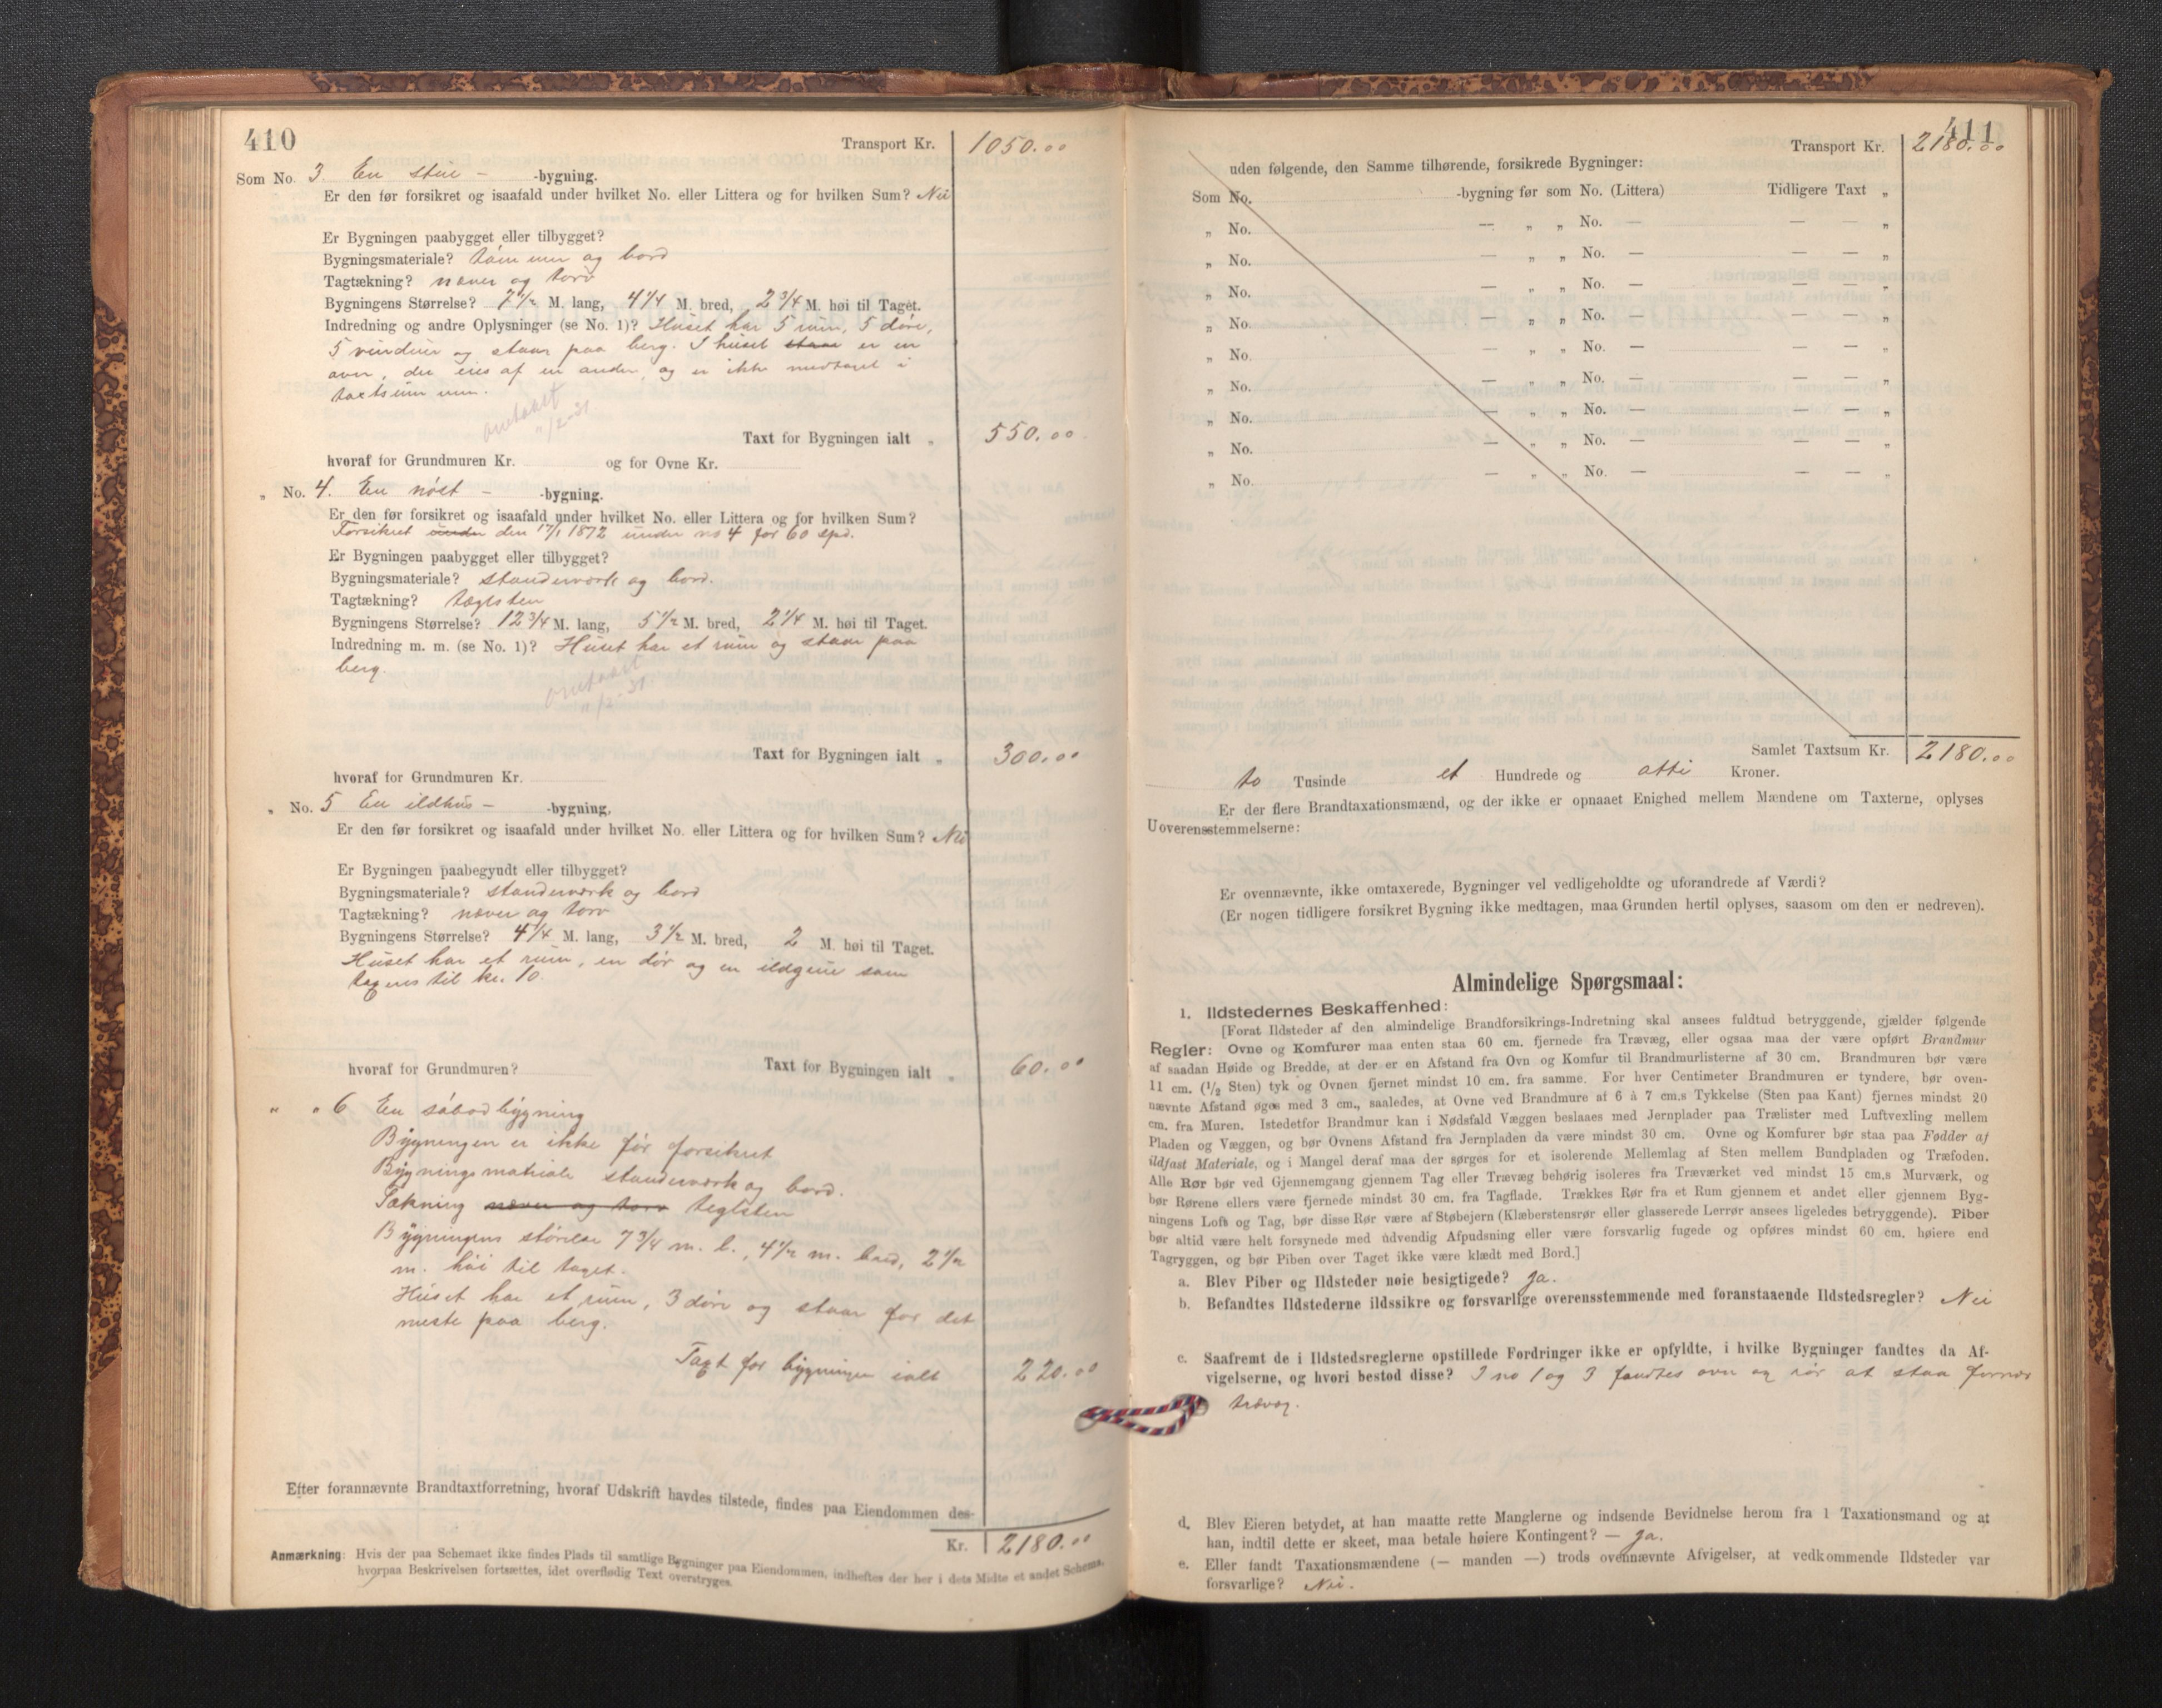 410
Transport Kr. 1050.00
Som No. 3. En stue - -bygning.
Er den før forsikret og isaafald under hvilket No. eller Littera og for hvilken Sum? Nei
Er Bygningen paabygget eller tilbygget?
Bygningsmateriale? tømmer og bord
Tagtækning? næver og torv
Bygningens Størrelse? 7 1/2 M. lang, 4 1/4 M. bred, 2 3/4 M. høi til Taget.
Indredning og andre Oplysninger (se No. 1)? Huset har 5 rum, 5 døre,
5 vinduer og staar paa berg. I huset staar er en
ovn, der eies af en anden, og er ikke medtaget i
taxtsummen.
Taxt for Bygningen ialt „ 550.00
hvoraf for Grundmuren Kr. og for Ovne Kr.
„ No. 4. En nøst - -bygning.
Er den før forsikret og isaafald under hvilket No. eller Littera og for hvilken Sum?
Forsikret under den 17/1 1872 under no 4 for 60 spd.
Er Bygningen paabygget eller tilbygget?
Bygningsmateriale? standerværk og bord.
Tagtækning? tæglsten
Bygningens Størrelse? 12 3/4 M. lang, 5 1/2 M. bred, 2 1/4 M. høi til Taget.
Indredning m. m. (se No. 1)? Huset har et rum og staar paa
berg.
Taxt for Bygningen ialt „ 300.00
hvoraf for Grundmuren Kr.
„ No. 5 En ildhus - -bygning,
Er den før forsikret og isaafald under hvilket No. eller Littera og for hvilken Sum? Nei
Er Bygningen paabegyndt eller tilbygget?
Bygningsmateriale? standerværk og bord
Tagtækning? næver og torv
Bygningens Størrelse? 4 1/4 M. lang, 3 1/2 M. bred, 2 M. høi til Taget.
Huset har et rum, en dør og en ildgrue som
taxeres til kr. 10.
hvoraf for Grundmuren? Taxt for Bygningen ialt „ 60.00
„ „ 6 En søbodbygning
Bygningen er ikke før forsikret
Bygningsmateriale standerværk og bord.
Tækning næver og torv teglsten
Bygningens störelse 7 3/4 m. l., 4 1/2 m. bred, 2 1/2
m. høi til taget.
Huset har et rum, 3 døre og staar for det
meste paa berg.
Taxt for bygningen ialt 220.00
Efter forannævnte Brandtaxtforretning, hvoraf Udskrift havdes tilstede, findes paa Eiendommen des-
Kr. 2180.00
Anmærkning: Hvis der paa Schemaet ikke findes Plads til samtlige Bygninger paa Eiendommen, indheftes der her i dets Midte et andet Schema,
hvorpaa Beskrivelsen fortsættes, idet overflødig Text overstryges.
411
Transport Kr. 2180.00
uden følgende, den Samme tilhørende, forsikrede Bygninger:
Som No. -bygning før som No. (Littera) Tidligere Taxt „
„ No. — „ „ No. — — — „
„ No. — „ „ No. — — — „
„ No. — „ „ No. — — — „
„ No. — „ „ No. — — — „
„ No. — „ „ No. — — — „
„ No. — „ „ No. — — — „
„ No. — „ „ No. — — — „
„ No. — „ „ No. — — — „
„ No. — „ „ No. — — — „
Samlet Taxtsum Kr. 2180.00
to Tusinde et Hundrede og otti Kroner.
Er der flere Brandtaxationsmænd, og der ikke er opnaaet Enighed mellem Mændene om Taxterne, oplyses
Uoverensstemmelserne:
Er ovennævnte, ikke omtaxerede, Bygninger vel vedligeholdte og uforandrede af Værdi?
(Er nogen tidligere forsikret Bygning ikke medtagen, maa Grunden hertil oplyses, saasom om den er nedreven).
Almindelige Spørgsmaal:
1. Ildstedernes Beskaffenhed:
[Forat Ildsteder af den almindelige Brandforsikrings-Indretning skal ansees fuldtud betryggende, gjælder følgende
Regler: Ovne og Komfurer maa enten staa 60 cm. fjernede fra Trævæg, eller ogsaa maa der være opført Brandmur
af saadan Høide og Bredde, at der er en Afstand fra Ovn og Komfur til Brandmurlisterne af 30 cm. Brandmuren bør være
11 cm. (1/2 Sten) tyk og Ovnen fjernet mindst 10 cm. fra samme. For hver Centimeter Brandmuren er tyndere, bør oven-
nævnte Afstand øges med 3 cm., saaledes, at Ovne ved Brandmure af 6 à 7 cm.s Tykkelse (Sten paa Kant) fjernes mindst 20
cm. fra Muren. Istedetfor Brandmur kan i Nødsfald Væggen beslaaes med Jernplader paa Trælister med Luftvexling mellem
Pladen og Væggen, og bør Ovnens Afstand fra Jernpladen da være mindst 30 cm. Ovne og Komfurer bør staa paa Fødder af
ildfast Materiale, og i Mangel deraf maa der sørges for et isolerende Mellemlag af Sten mellem Bundpladen og Træfoden.
Alle Rør bør ved Gjennemgang gjennem Tag eller Trævæg behørig isoleres fra Træværket ved mindst 15 cm.s Murværk, og
bør Rørene ellers være fjernede mindst 30 cm. fra Tagflade. Trækkes Rør fra et Rum gjennem et andet eller gjennem Byg-
ningens Loft og Tag, bør disse Rør være af Støbejern (Klæberstensrør eller glasserede Lerrør ansees ligeledes betryggende). Piber
bør altid være helt forsynede med udvendig Afpudsning eller være forsvarlig fugede og opføres mindst 60 cm. høiere end
Tagryggen, og bør Piben over Taget ikke være klædt med Bord.]
a. Blev Piber og Ildsteder nøie besigtigede? Ja.
b. Befandtes Ildstederne ildssikre og forsvarlige overensstemmende med foranstaaende Ildstedsregler? Nei
c. Saafremt de i Ildstedsreglerne opstillede Fordringer ikke er opfyldte, i hvilke Bygninger fandtes da Af-
vigelserne, og hvori bestod disse? I no 1 og 3 fandtes ovn og rør at staa for nær
trævæg.
d. Blev Eieren betydet, at han maatte rette Manglerne og indsende Bevidnelse herom fra 1 Taxationsmand og at
han, indtil dette er skeet, maa betale høiere Kontingent? — Ja.
e. Eller fandt Taxationsmændene (— manden —) trods ovennævnte Afvigelser, at vedkommende Ildsteder var
forsvarlige? Nei.